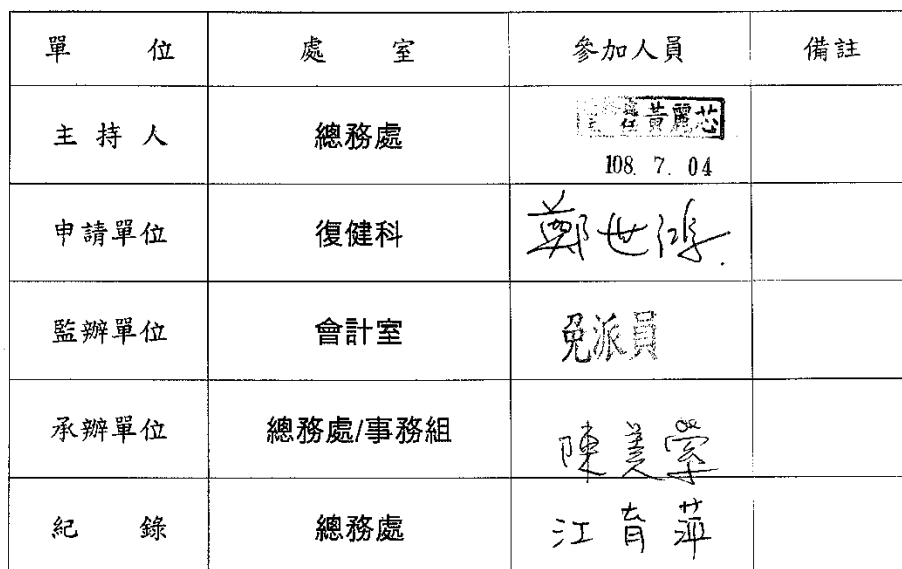 單 位 處 室 參加人員 備註
主 持 人 總務處 黃麗芯
108. 7. 04
申請單位 復健科 鄭世鴻
監辦單位 會計室 免派員
承辦單位 總務處/事務組 陳美縈
紀 錄 總務處 江育萍